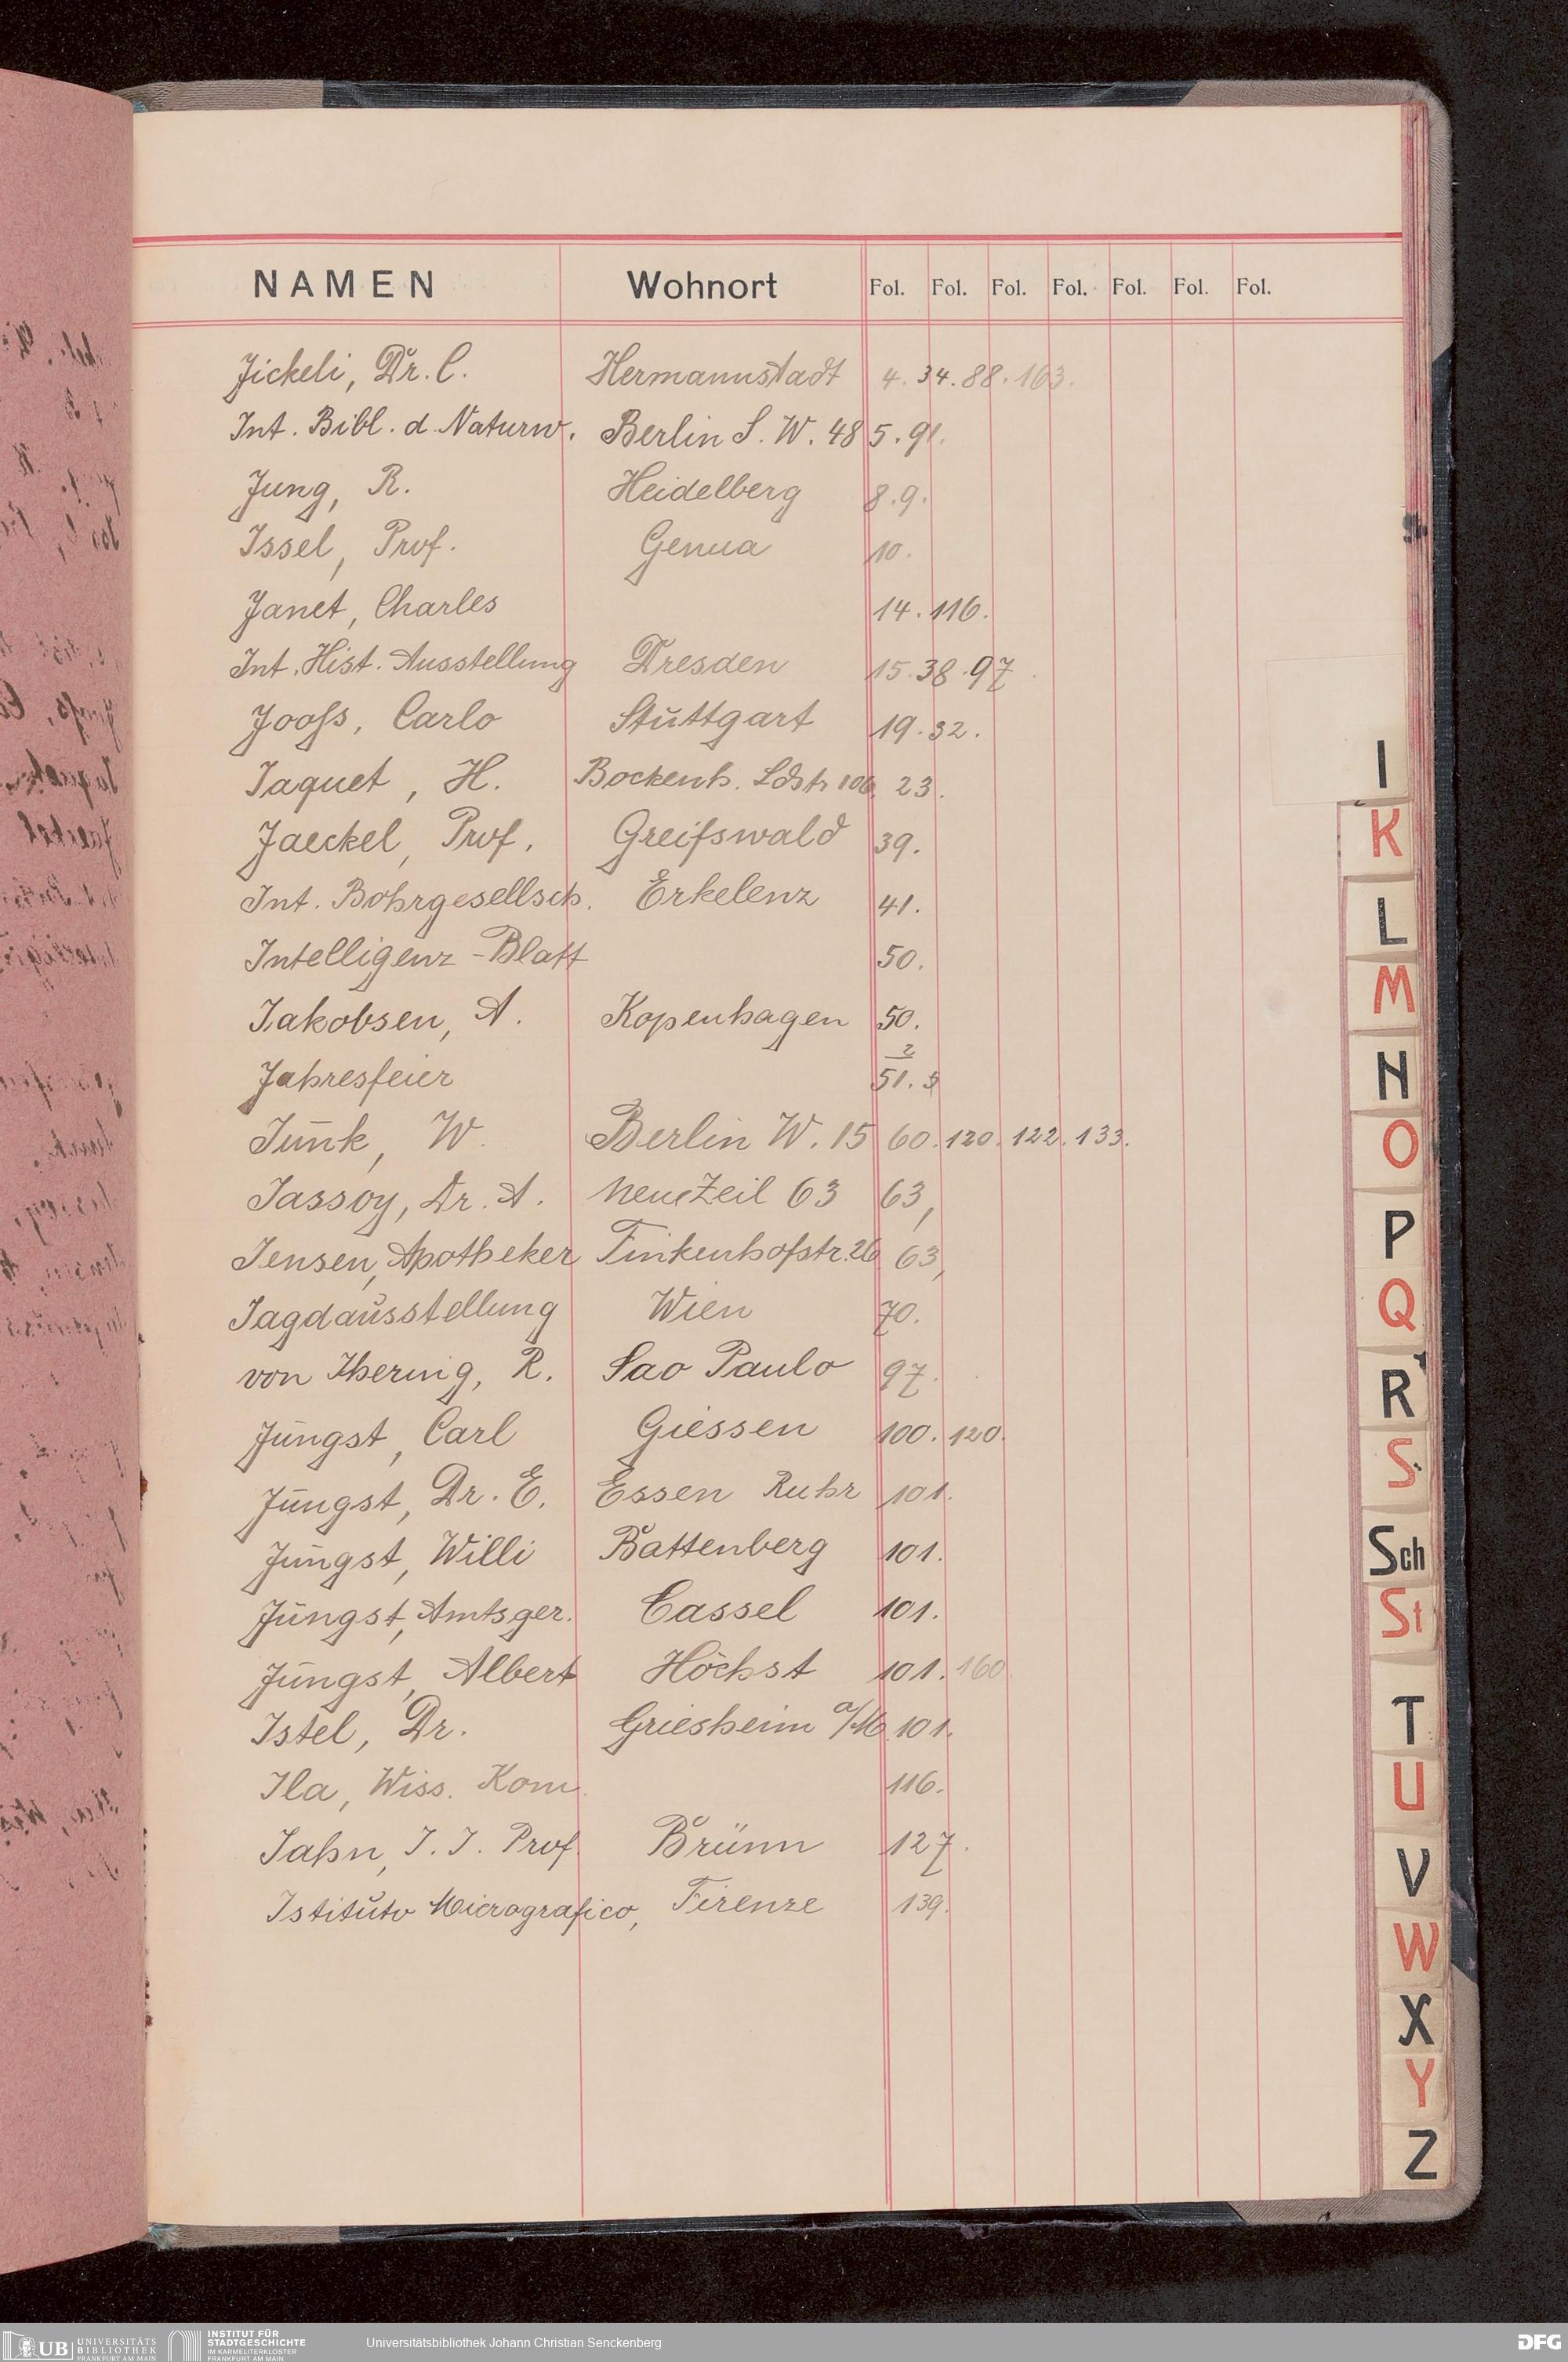 NAMEN Wohnort Fol. Fol. Fol. Fol. Fol. Fol. Fol.
Jickeli, Dr. C. Hermannstadt 4. 34. 88. 163.
Int. Bibl. d. Naturw. Berlin S. W. 48 5. 91.
Jung, R. Heidelberg 8. 9.
Issel, Prof. Genua 10.
Janet, Charles 14. 116.
Int. Hist. Ausstellung Dresden 15. 38. 97
Jooss, Carlo Stuttgart 19. 32.
Jaquet, H. Bockenh. Ldstr 106. 23.
Jaeckel, Prof. Greifswald 39.
Int. Bohrgesellsch. Erkelenz 41.
Intelligenz-Blatt 50.
Jakobsen, A. Kopenhagen 50.
Jahresfeier 51.
Junk, W. Berlin W. 15 60. 120. 122. 133.
Jassoy, Dr. A. Neue Zeil 63 63,
Jensen, Apotheker Finkenhofstr. 26 63,
Jagdausstellung Wien 70.
von Ihering, R. Sao Paulo 97.
Jüngst, Carl Giessen 100. 120.
Jüngst, Dr. E. Essen Ruhr 101.
Jüngst, Willi Battenberg 101.
Jüngst, Amtsger. Cassel 101.
Jüngst, Albert Höchst 101. 160.
Istel, Dr. Griesheim a/M 101.
Ila, Wiss. Kom. 116.
Jahn, J. J. Prof. Brünn 127.
Istituto Micrografico, Firenze 139.
I
K
L
M
N
O
P
Q
R
S
Sch
St
T
U
V
W
X
Y
Z
UB UNIVERSITÄTS BIBLIOTHEK FRANKFURT AM MAIN
INSTITUT FÜR STADTGESCHICHTE IM KARMELITERKLOSTER FRANKFURT AM MAIN
Universitätsbibliothek Johann Christian Senckenberg
DFG